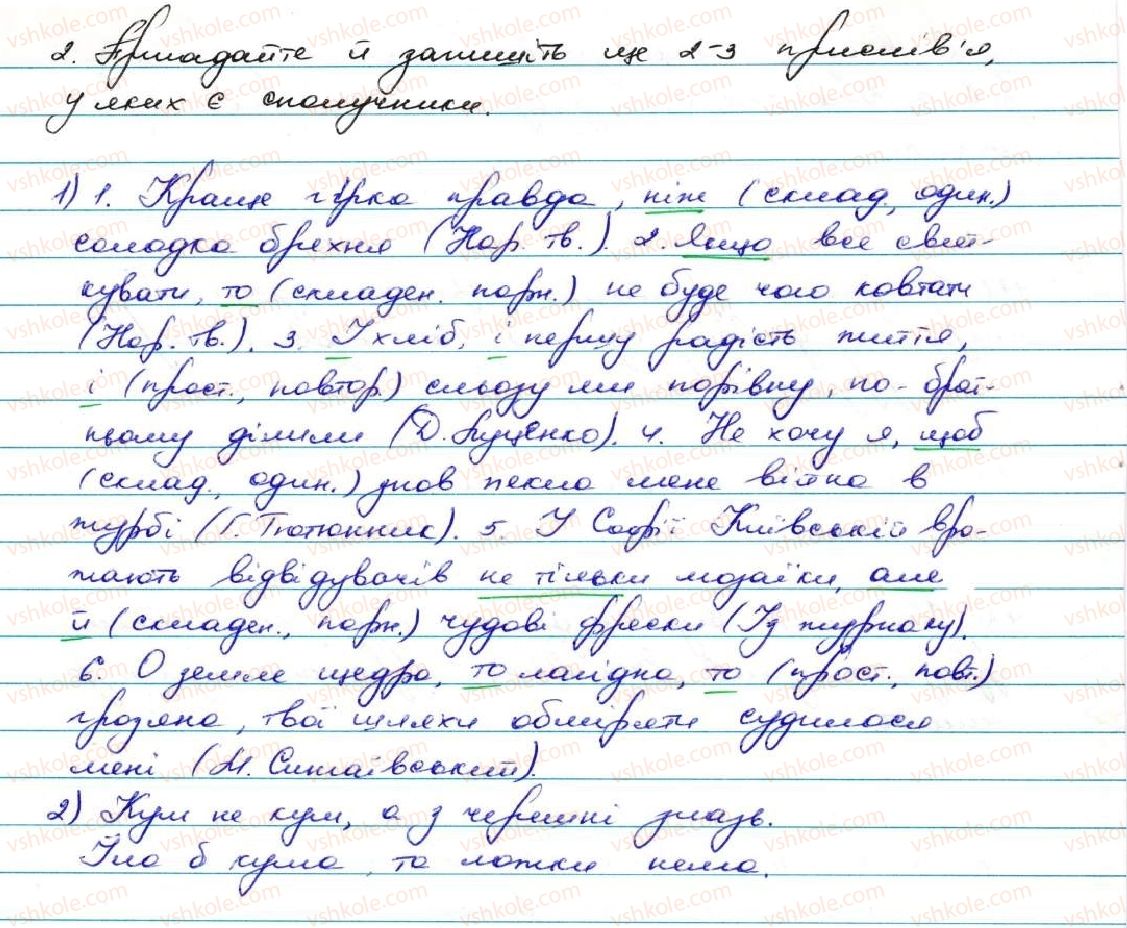 2. Пригадайте й запишіть ще 2-3 прислів'я,
у яких є сполучники.
1) 1. Краще гірка правда, ніж (склад., один.)
солодка брехня (Нар. тв.). 2. Якщо все свят-
кувати, то (складен. парн.) не буде чого ковтати
(Нар. тв.). 3. І хліб, і першу радість життя,
і (прост., повтор.) сльозу ми порівну, по-брат-
ньому ділили (Д. Луценко). 4. Не хочу я, щоб
(склад., один.) знов пекла мене війна в
журбі (Г. Тютюнник). 5. У Софії Київській вра-
жають відвідувачів не тільки мозаїки, але
й (складен., парн.) чудові фрески (Із журналу).
6. О земле щедра, то лагідна, то (прост., повт.)
грозяна, твої шляхи обміряти судилося
мені (М. Сингаївський).
2) Кум не кум, а з черешні злазь.
Їла б кума, та ложки нема.